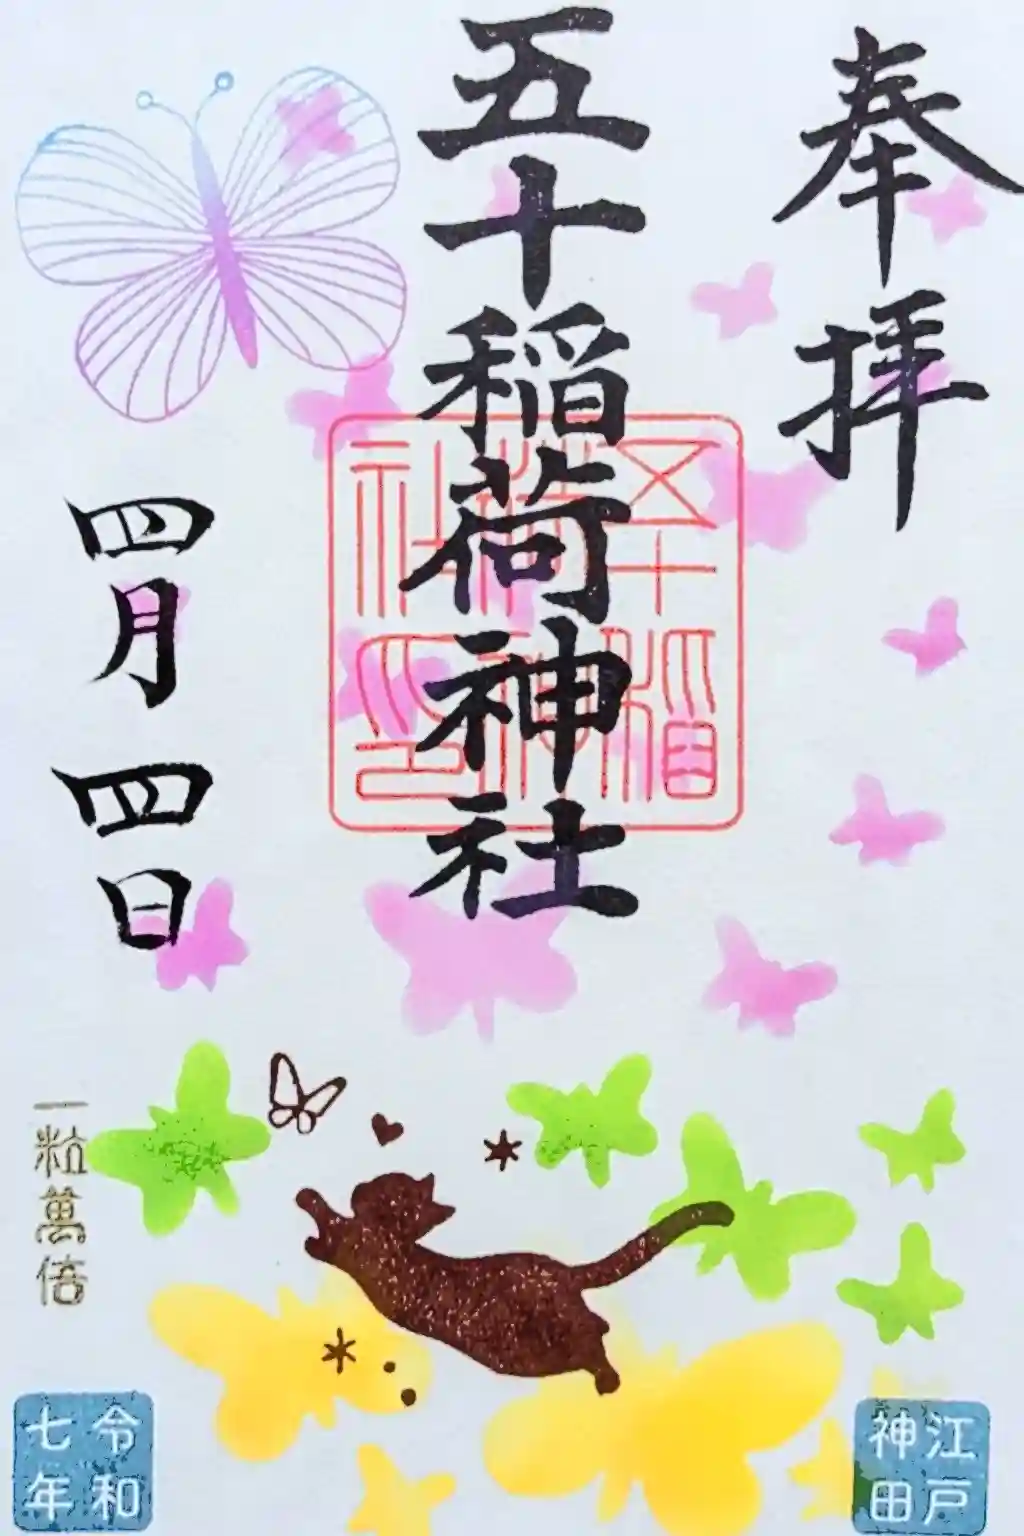 奉拝
五十稲荷神社
五十稲荷神社印
四月四日
一粒萬倍
江戸神田
令和七年